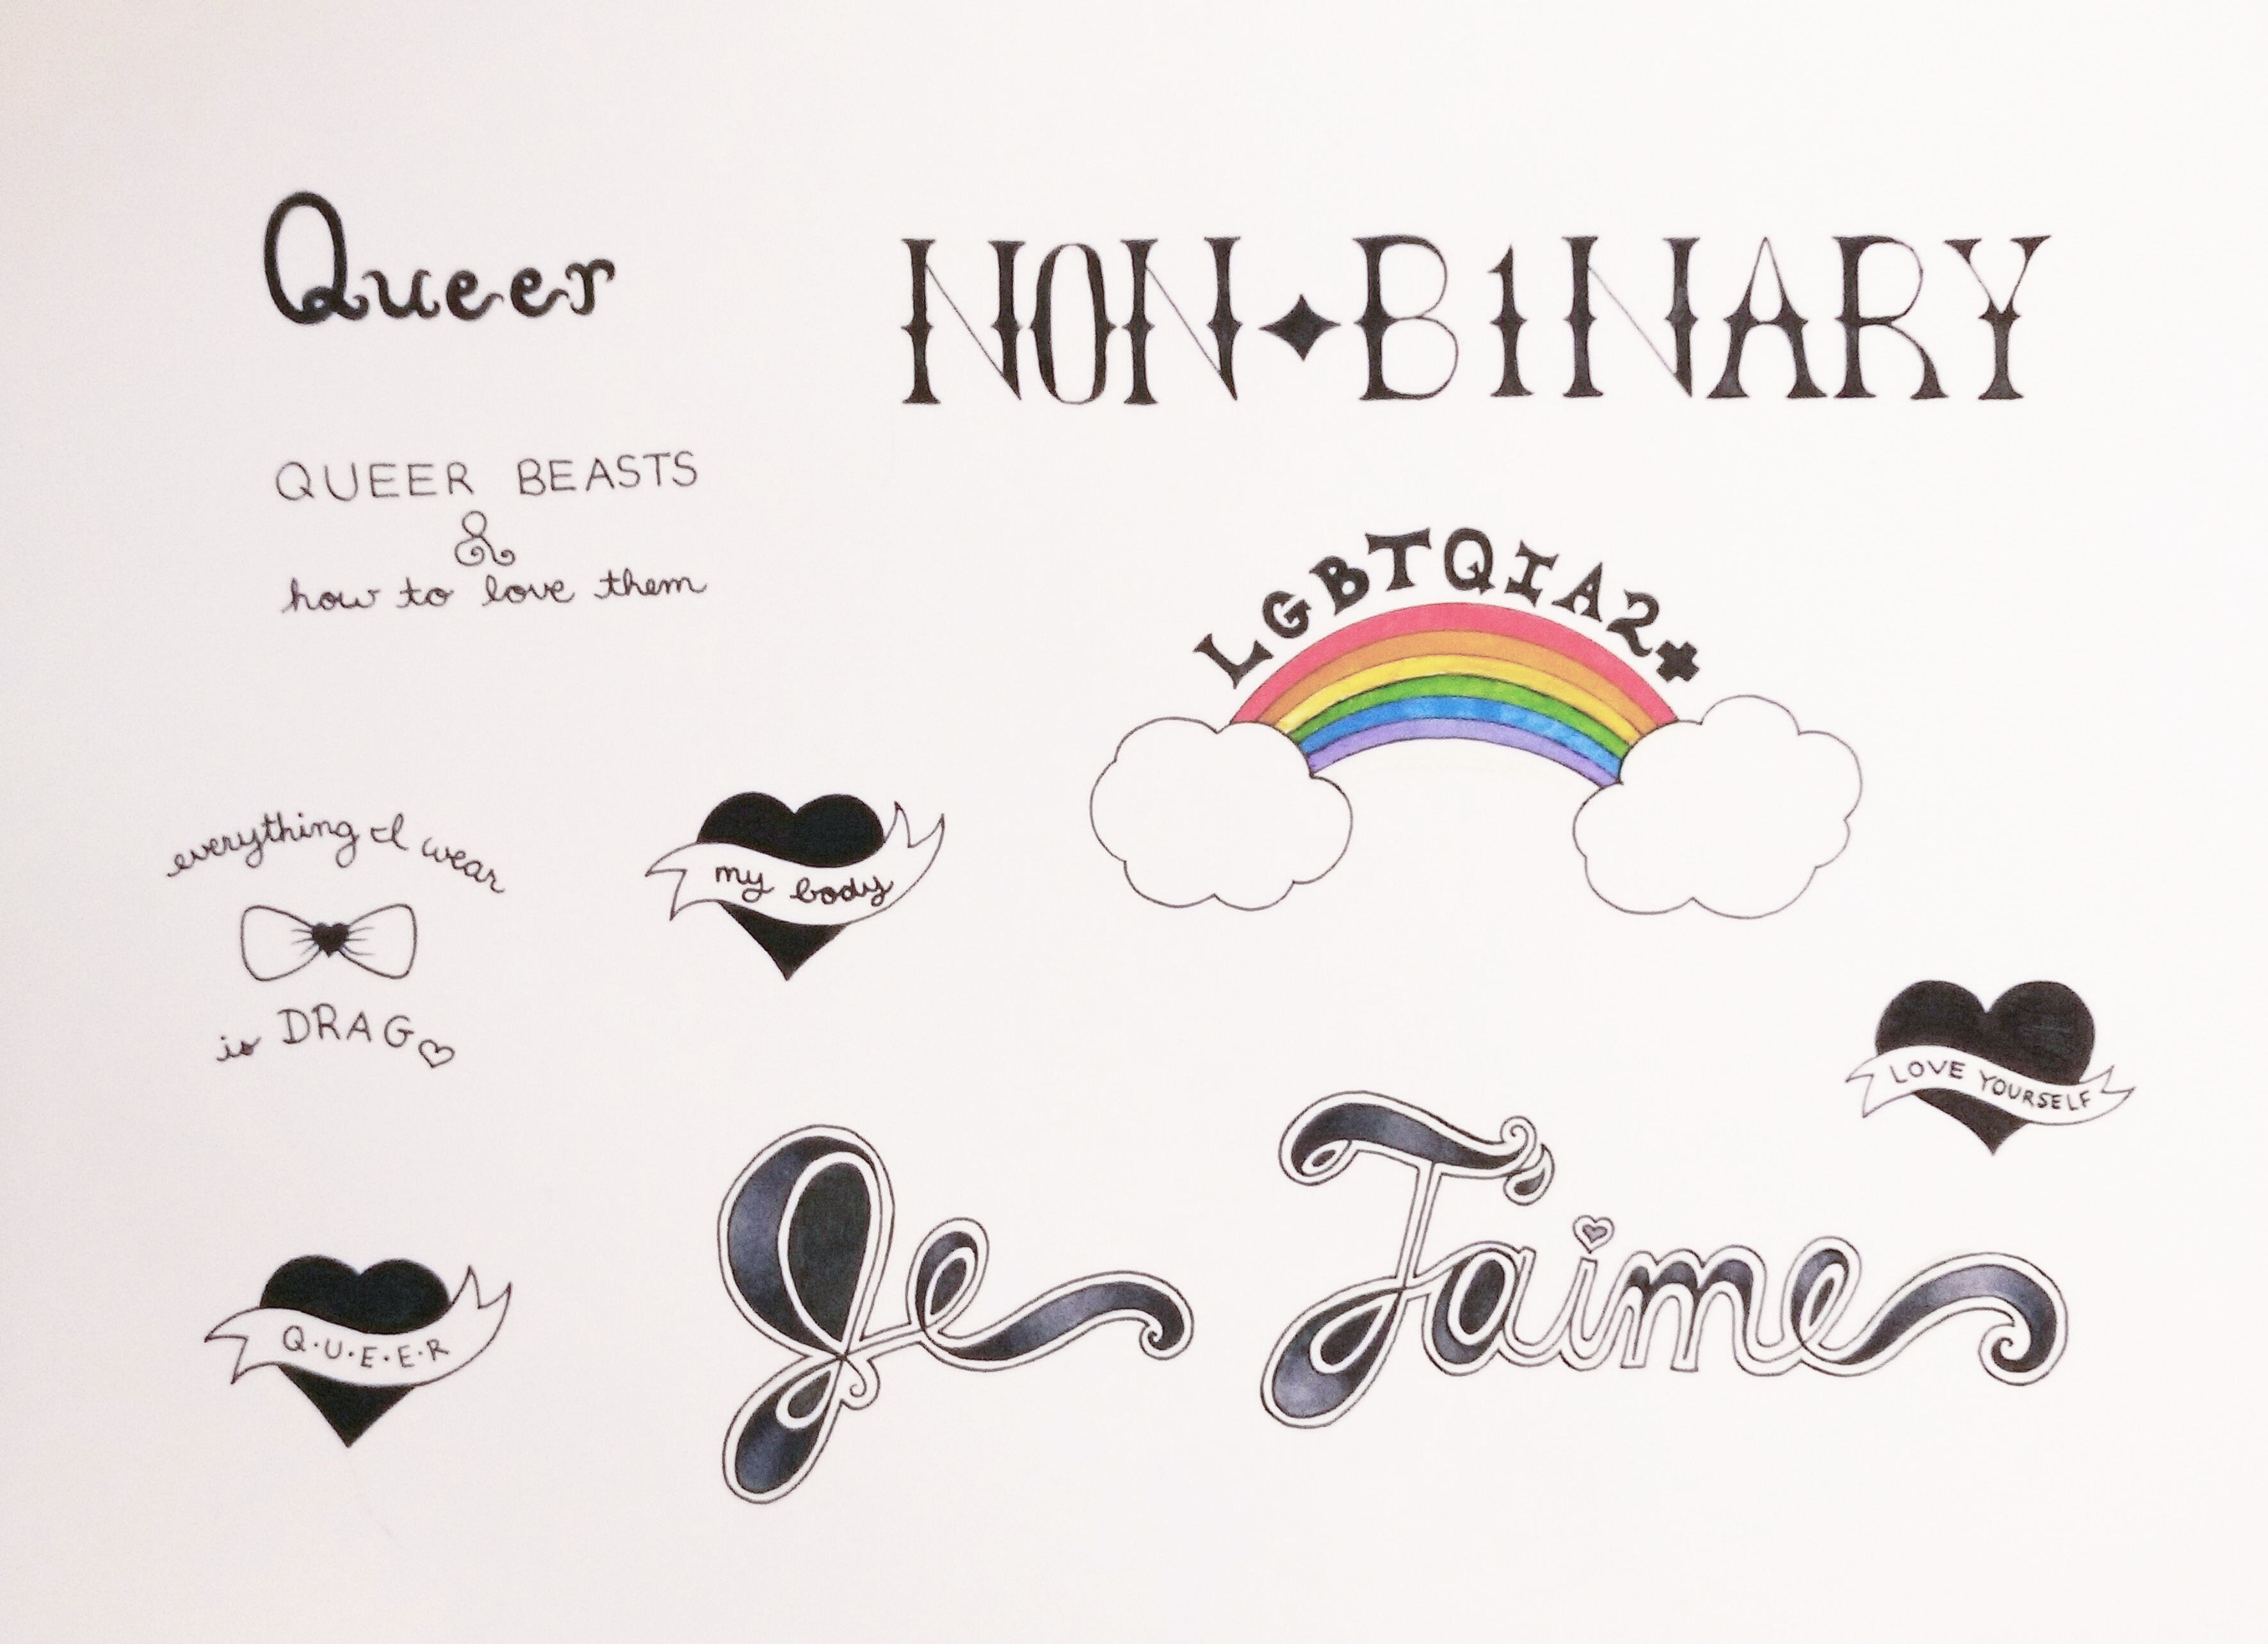 Queer
NON✦B1NARY
QUEER BEASTS
&
how to love them
LGBTQIA2+
everything I wear
is DRAG♡
my body
LOVE YOURSELF
Je T'aime
Q·U·E·E·R